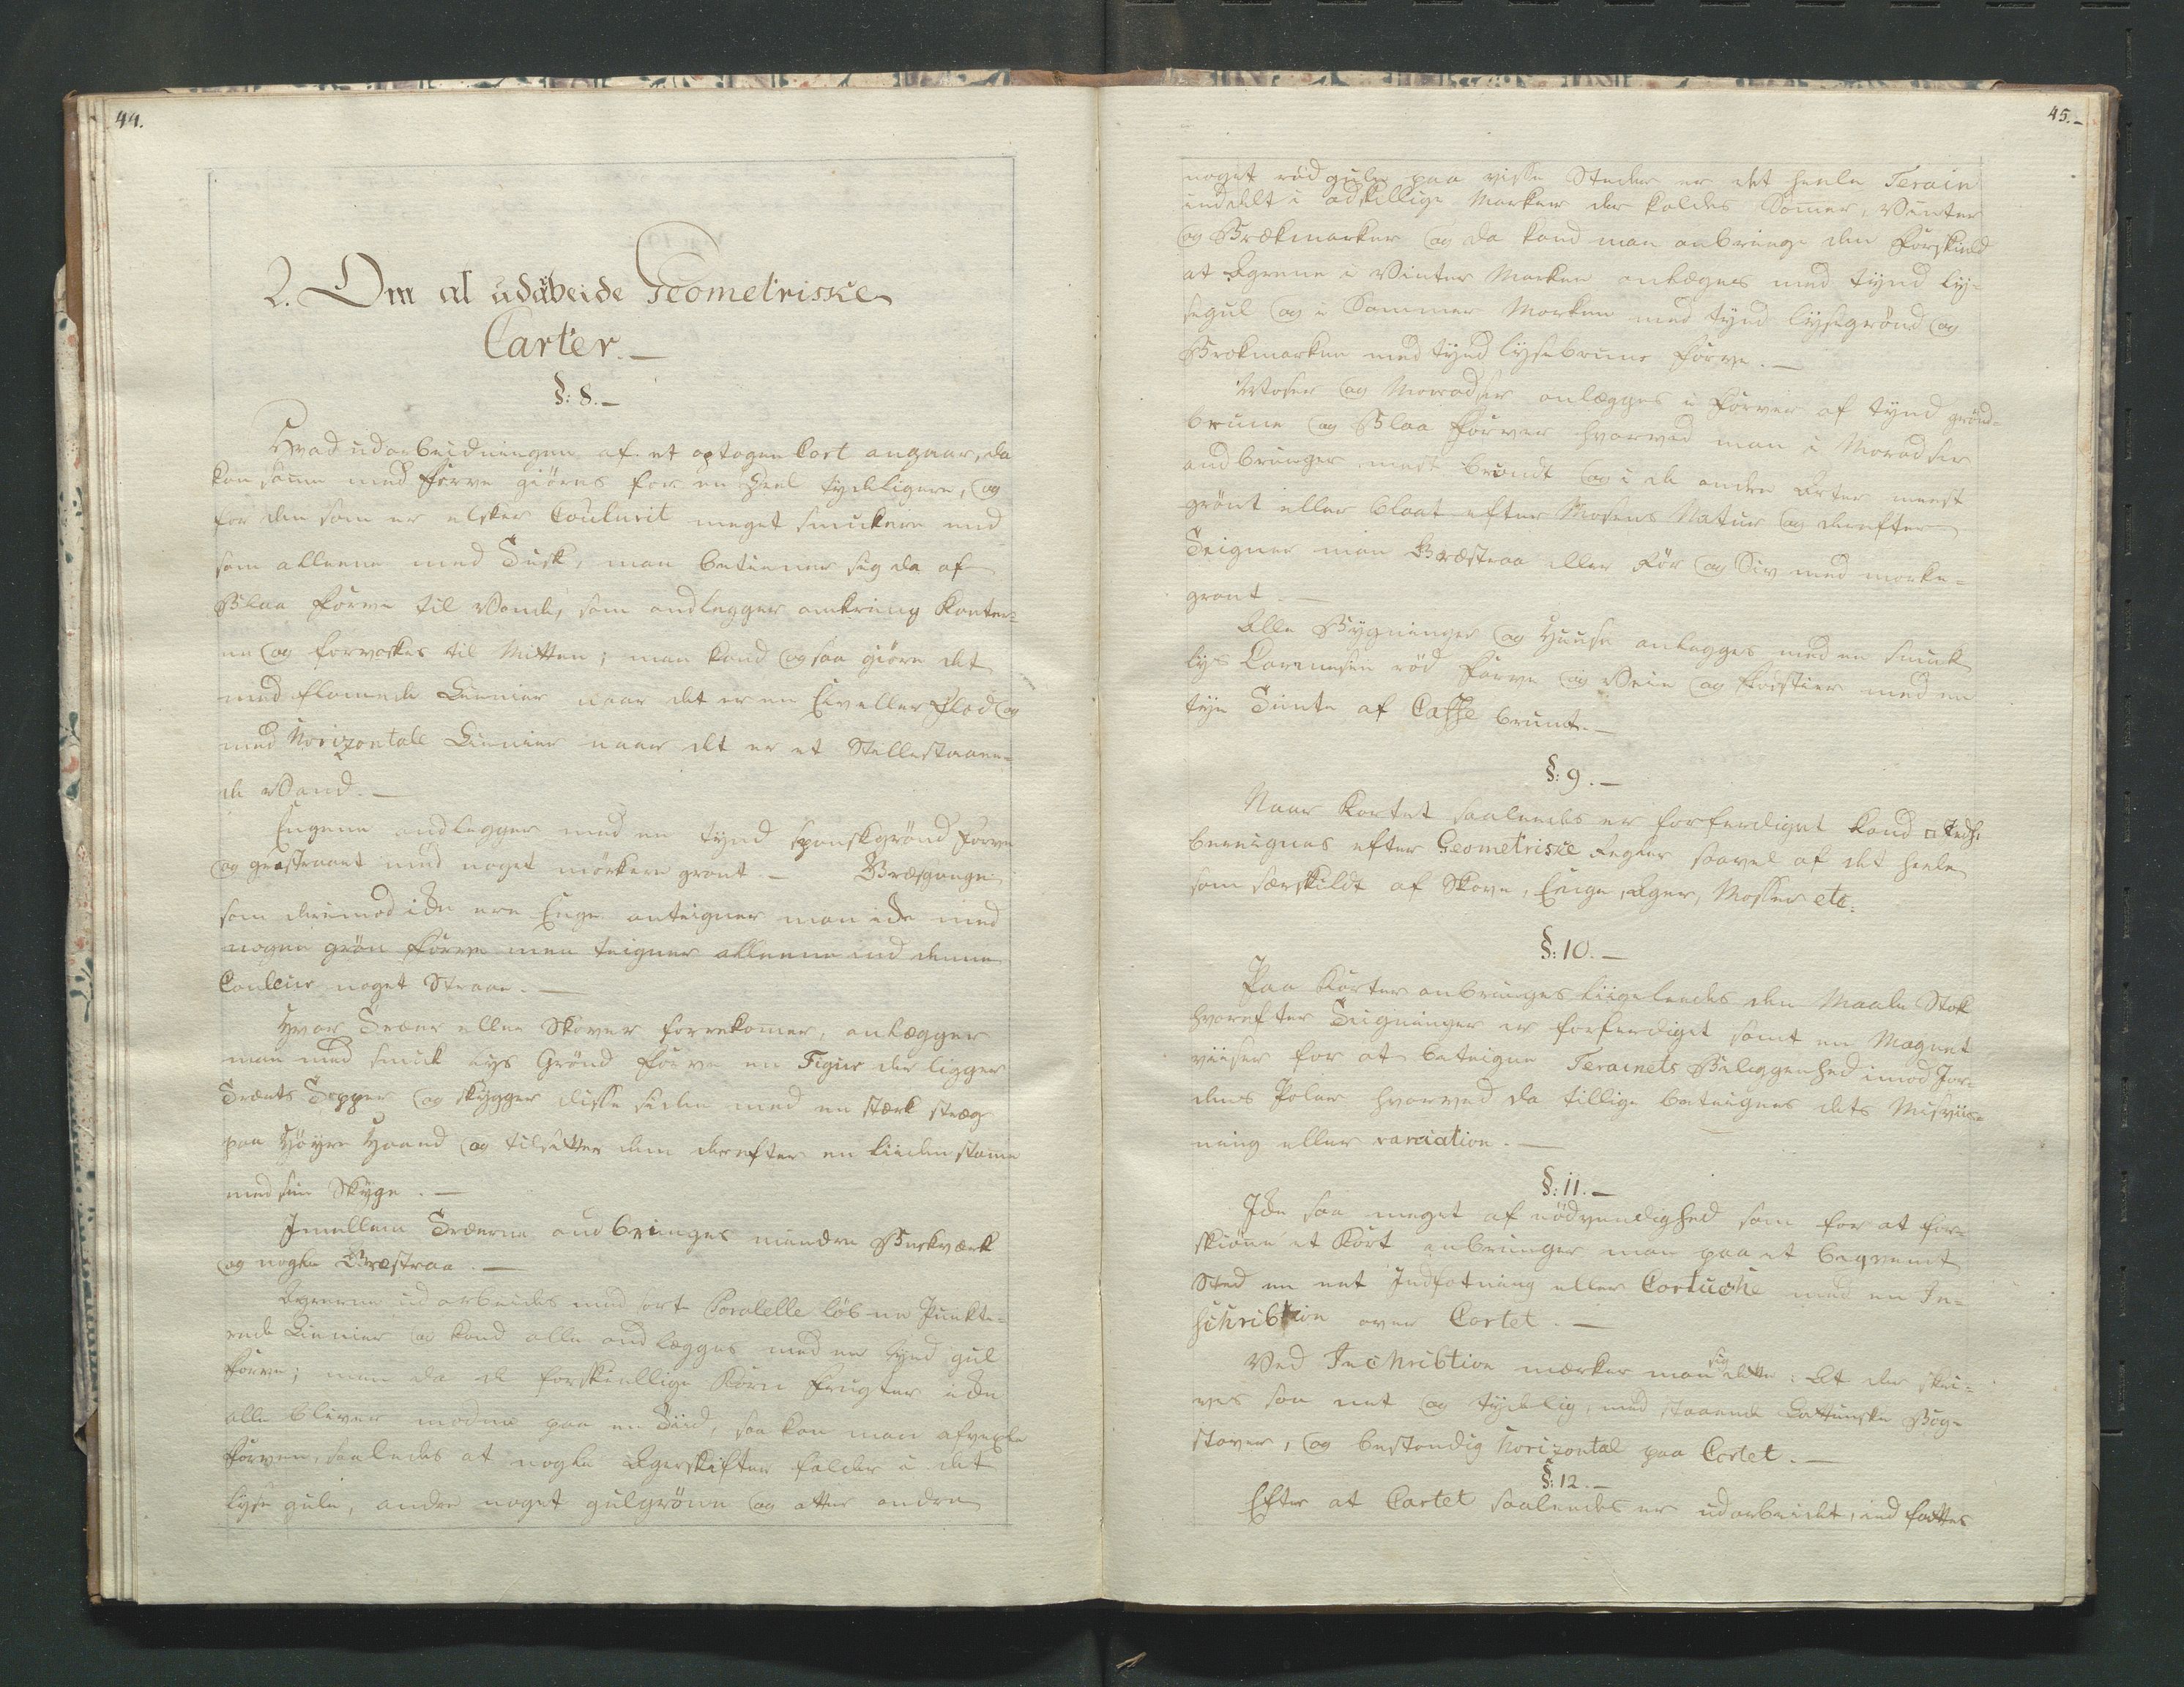 44.
2. Om at udarbeide Geometriske
Carter.—
§: 8.—
Hvad udarbeidningen af et optagen Cort angaar, da
kan samme med Farve giöres for en Heel tydeligere, og
for den som er elsker Couluerit meget smukere end
som alleene med Tusk, man betiener sig da af
Blaa Farve til Vande, som andlegger omkring Kanter=
ne og forvaskes til Mitten; man kand ogsaa giöre det
med flamede Linnier naar det er en Elv eller Flod og
med Horizontale Linnier naar det er et Stillestaaen=
de Vand.—
Engene andlegger med en tynd spanskgrönd Farve
og græstraaet med noget mörkere grönt.— Græsgange
som derimod ikke ere Enge anteigner man ikke med
nogen grön Farve men teigner alleene med denne
Couleur noget Straae.—
Hvor Træer eller Skover forrekomer, anlægger
man med smuk lys Grönd Farve en Figur der ligger
Træets Topper og skygger disse siden med en stærk stræg
paa Höyre Haand og tilsetter dem derefter en liiden stame
med sin Skyge.—
Imellem Træerne andbringes mindre Buskværk
og nogle Græstraa.—
Agrerne udarbeides med sort Paralelle löbene Punkte=
rede Linnier og kand alle andlægges med en tynd gul
Farve; men da de forskiellige Korn Frugter ikke
alle bliver modne paa en Tiid, saa kan man afvexle
Farven, saaledes at nogle Agerskifter falder i det
lyse gule, andre noget gulgröne og atter andre
45.—
noget rödgule paa visse Steder er det heele Terain
inddelt i adskillige Marker der kaldes Sommer, Vinter
og Brakmarker og da kand man anbringe den Forskield
at Agrene i Vinter Marken anlægges med tynd ly=
segul og i Sommer Marken med tynd lysegrönd og
Brakmarken med tynd lysebrune Farve.—
Moser og Moradser anlægges i Farver af tynd grönd=
brune og Blaa Farver hvorved man i Moradser
andbringer mest brundt og i de andre Arter meest
grönt eller blaat efter Mosens Natur og derefter
Teigner man Græstraa eller Rör og Siv med mörke=
grönt.—
Alle Bygninger og Huuse anlegges med en smuk
lys Carmesin röd Farve og Veie og Fodstier med en
tyn Tinte af Caffe brunt.—
§: 9.—
Naar Kortet saaledes er forferdiget kand □ Indh:
bereignes efter Geometriske Regler saavel af det heele
som særskildt af Skove, Enge, Ager, Mosser etc:
§: 10.—
Paa Korter anbringes liigeledes den Maale Stok
hvorefter Teigninger er forferdiget samt en Magnet
viiser for at beteigne Terainets Beliggenhed imod Jor=
dens Poler hvorved da tillige beteignes dets Misviis=
ning eller varciation.—
§: 11.—
Ikke saa meget af nödvendighed som for at for=
skiönne et Kort anbringer man paa et beqvemt
Sted en net Indfatning eller Cartuche med en In=
schribtion over Cartet.—
Ved Inchribtion mærker man sig dette: At den skri=
ves saa net og tydelig, med staaende Lattinske Bog=
staver, og bestandig horizontal paa Cartet.—
§: 12.—
Efter at Cartet saaledes er udarbeidet, indfattes